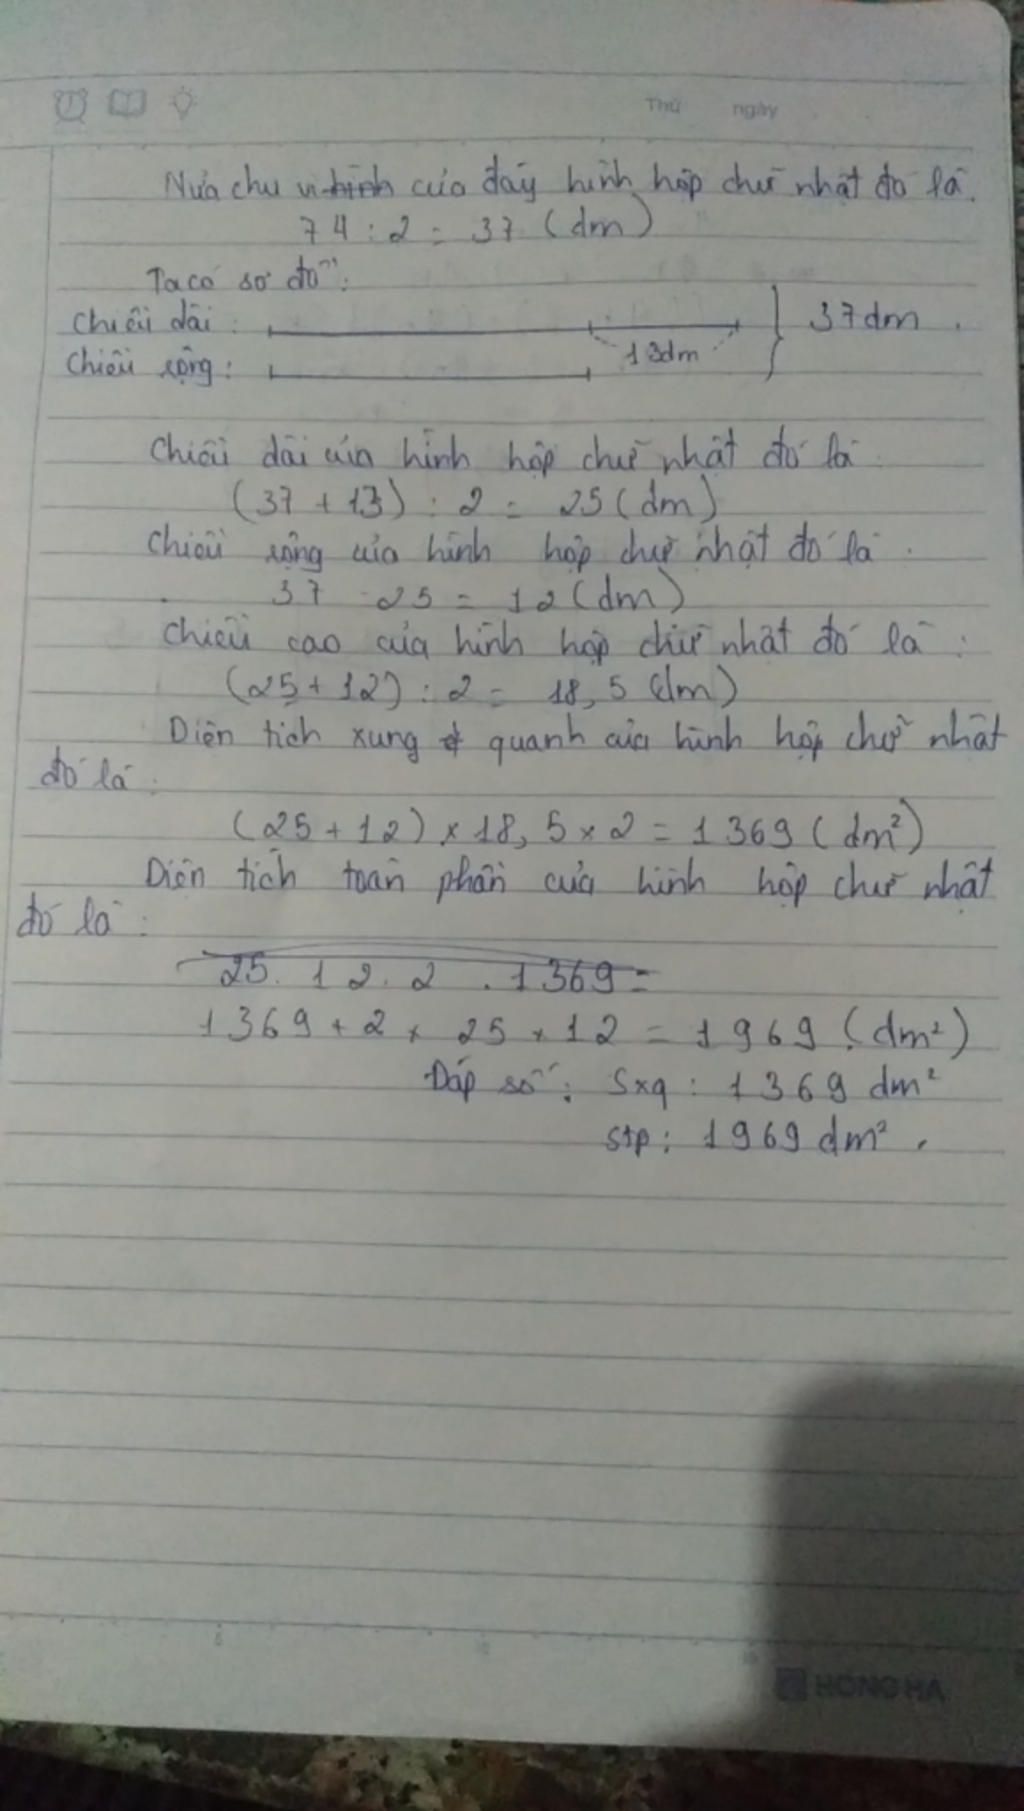 Thứ ngày
Nửa chu vi hình của đáy hình hộp chữ nhật đó là.
74 : 2 = 37 (dm)
Ta có sơ đồ :
Chiều dài : 37dm .
13dm
Chiều rộng :
Chiều dài của hình hộp chữ nhật đó là
(37 + 13) : 2 = 25 (dm)
Chiều rộng của hình hộp chữ nhật đó là .
37 - 25 = 12 (dm)
Chiều cao của hình hộp chữ nhật đó là :
(25 + 12) : 2 = 18,5 (dm)
Diện tích xung quanh của hình hộp chữ nhật
đó là :
(25 + 12) × 18,5 × 2 = 1369 (dm²)
Diện tích toàn phần của hình hộp chữ nhật
đó là :
25 . 12 . 2 . 1369 =
1369 + 2 × 25 × 12 = 1969 (dm²)
Đáp số : Sxq : 1369 dm²
Stp : 1969 dm² .
HONG HA